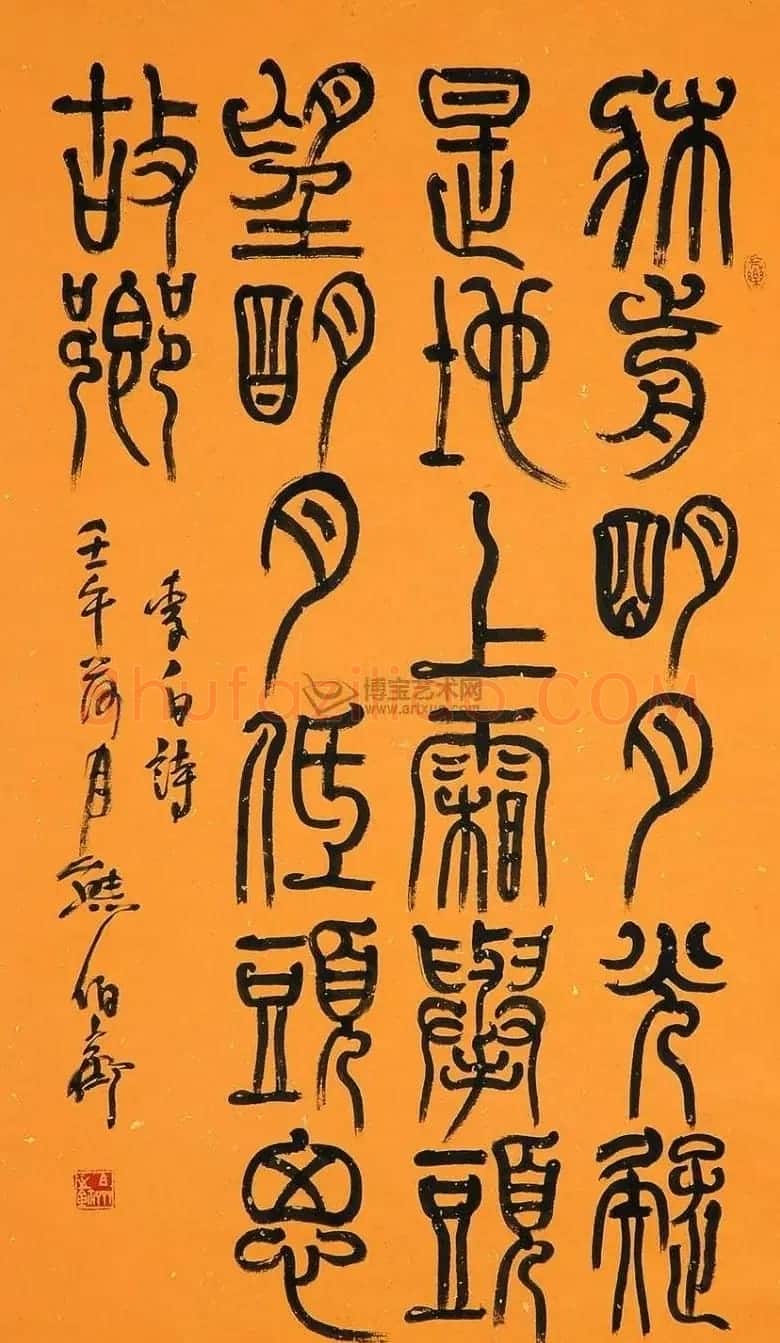 牀前明月光疑
是地上霜舉頭
望明月低頭思
故鄉
李白詩
壬午荷月熊伯齊
博宝艺术网
www.artxun.com